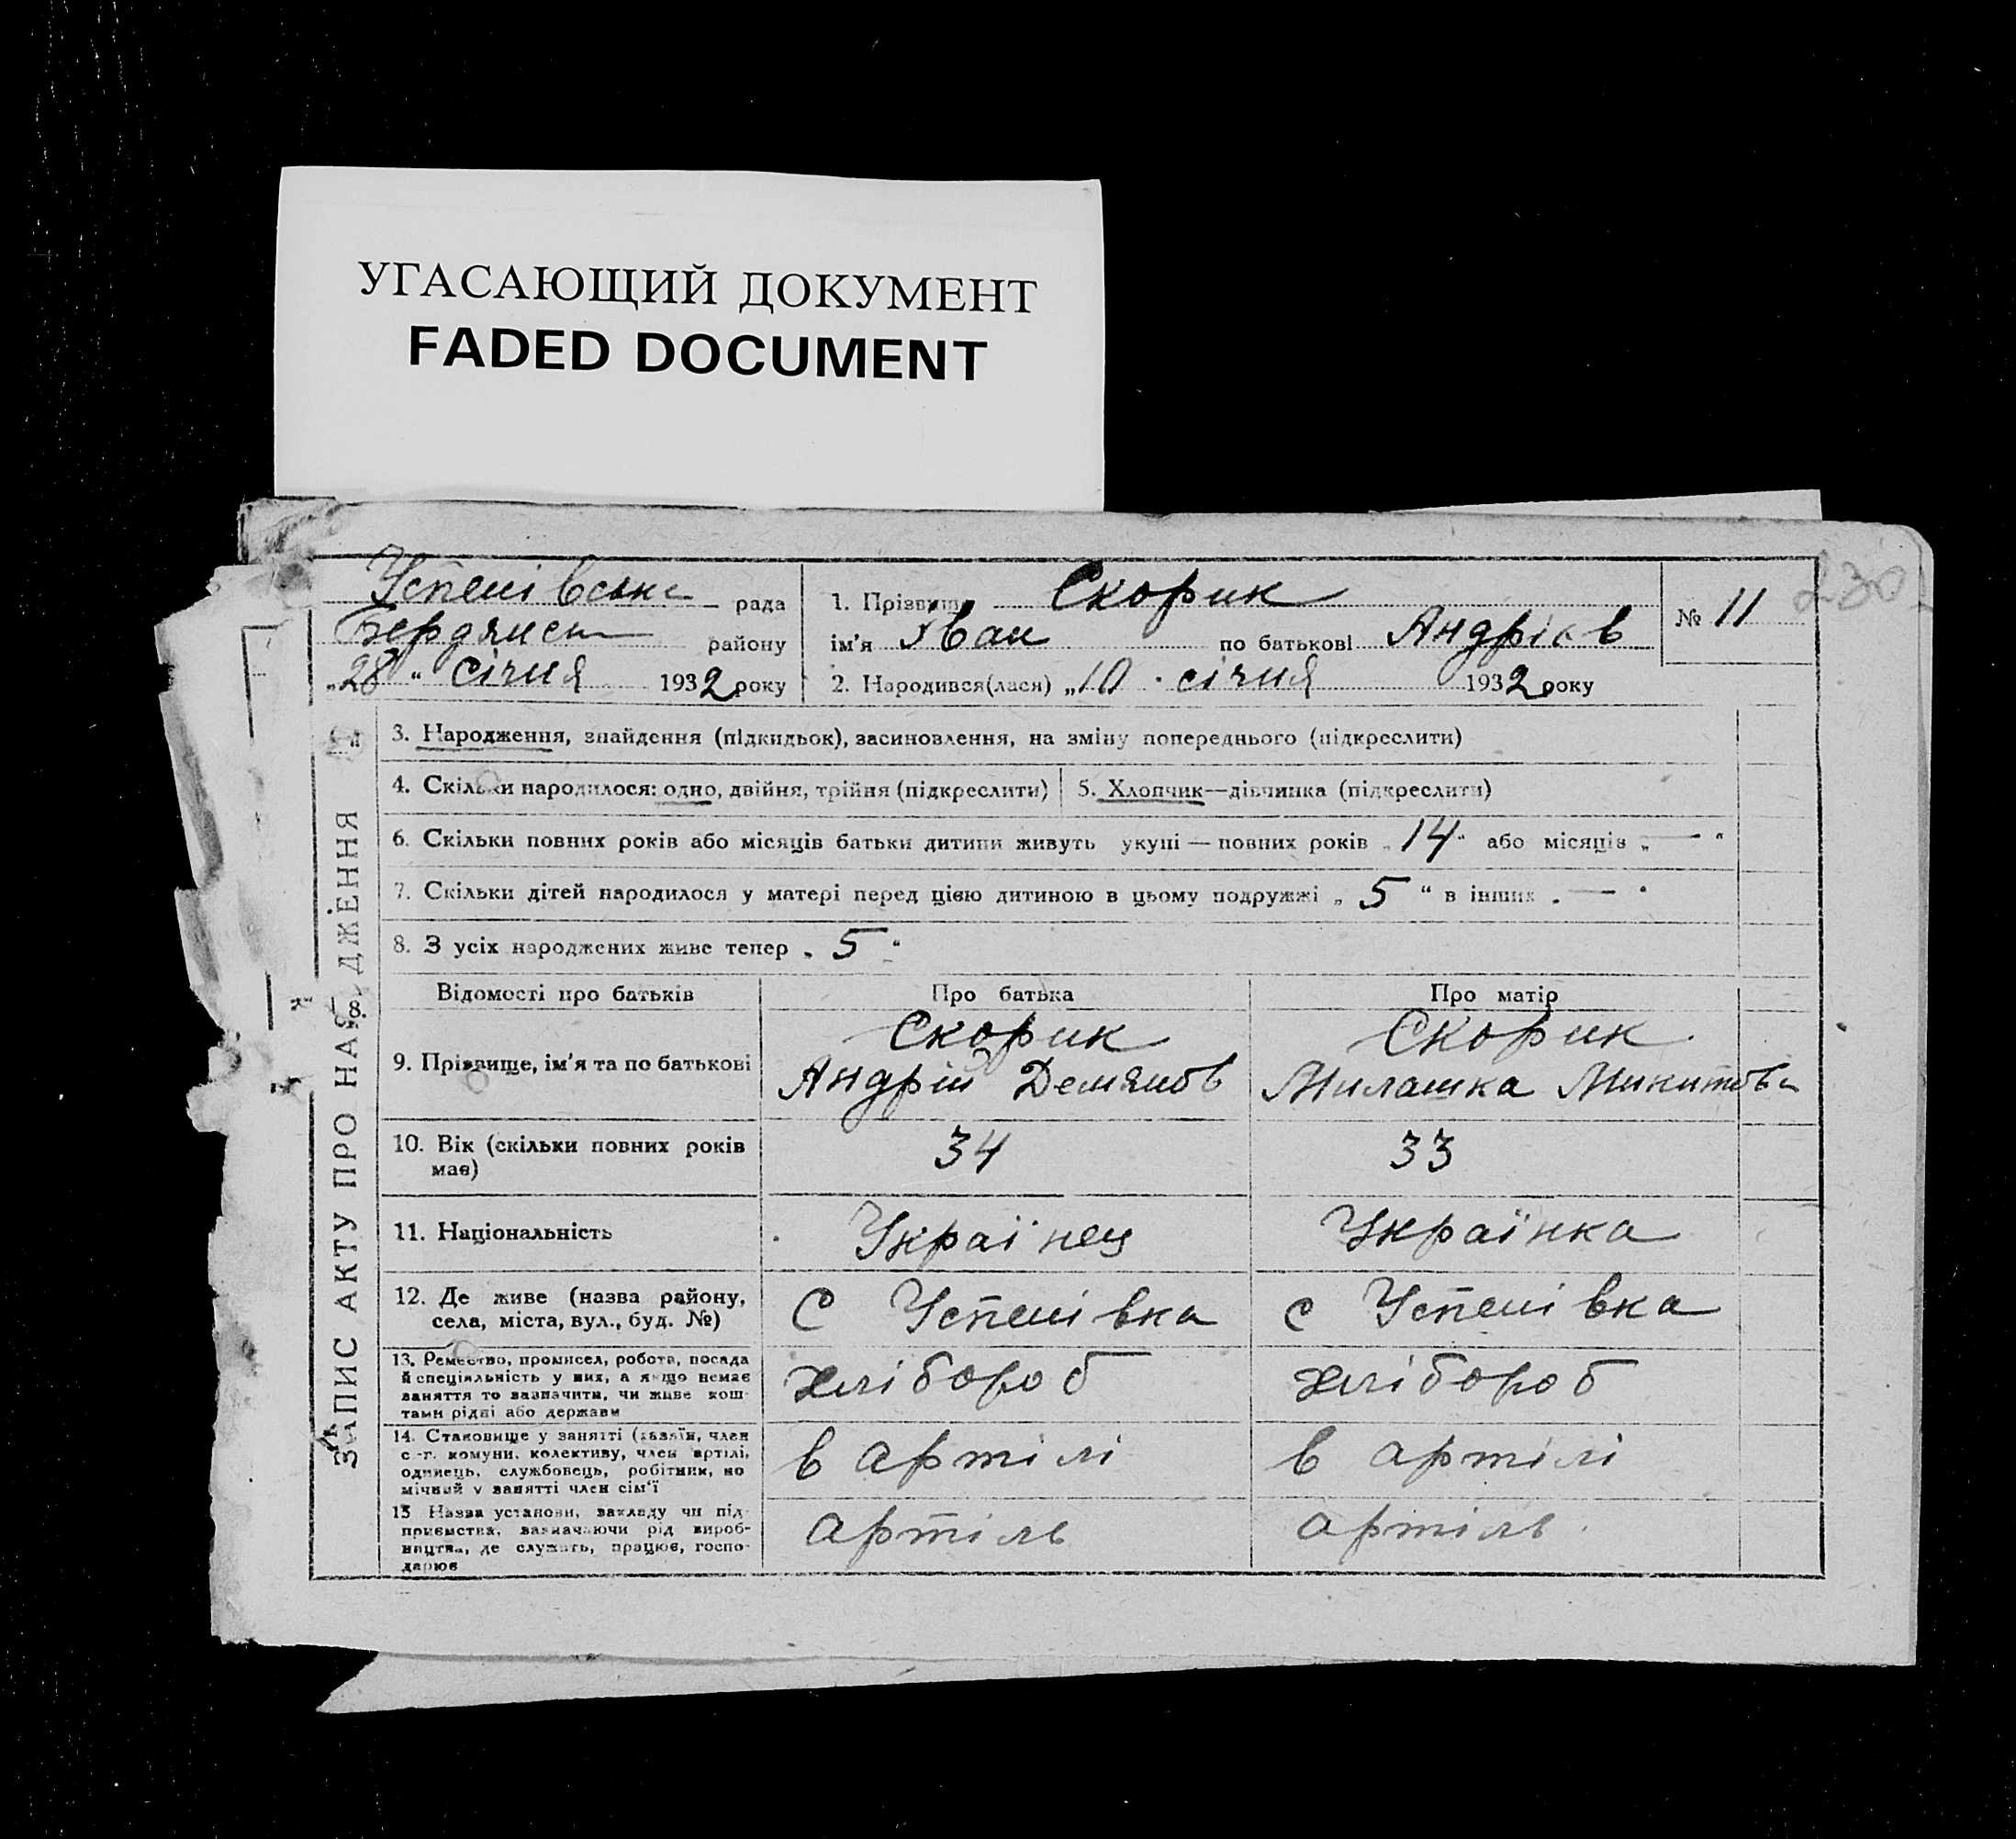 УГАСАЮЩИЙ ДОКУМЕНТ
FADED DOCUMENT
Успенівська рада
Бердянськ району
„28“ січня 1932 року
1. Прізвищ Скорик
ім'я Іван по батькові Андріїв
2. Народився(лася) „10 січня 1932 року
№ 11
230
ЗАПИС АКТУ ПРО НАРОДЖЕННЯ
3. Народження, знайдення (підкидьок), засиновлення, на зміну попереднього (підкреслити)
4. Скільки народилося: одно, двійня, трійня (підкреслити)
5. Хлопчик—дівчинка (підкреслити)
6. Скільки повних років або місяців батьки дитини живуть укупі — повних років „14“ або місяців „—“
7. Скільки дітей народилося у матері перед цією дитиною в цьому подружжі „5“ в інших „—“
8. З усіх народжених живе тепер „5“
Відомості про батьків Про батька Про матір
9. Прізвище, ім'я та по батькові
Скорик
Андрій Демянов
Скорик
Милашка Микитовн
10. Вік (скільки повних років
має)
34
33
11. Національність
Українец
Українка
12. Де живе (назва району,
села, міста, вул., буд. №)
С Успенівка
с Успенівка
13. Ремество, промисел, робота, посада
й спеціяльність у них, а якщо немає
заняття то зазначити, чи живе кош-
тами рідні або держави
хлібороб
хлібороб
14. Становище у занятті (хазяїн, член
с.-г. комуни, колективу, член артілі,
одинець, службовець, робітник, по
мічний у занятті член сім'ї
в артілі
в артілі
15 Назва установи, закладу чи під-
приємства, зазначаючи рід вироб-
ництва, де служить, працює, госпо-
дарює
артіль
артіль